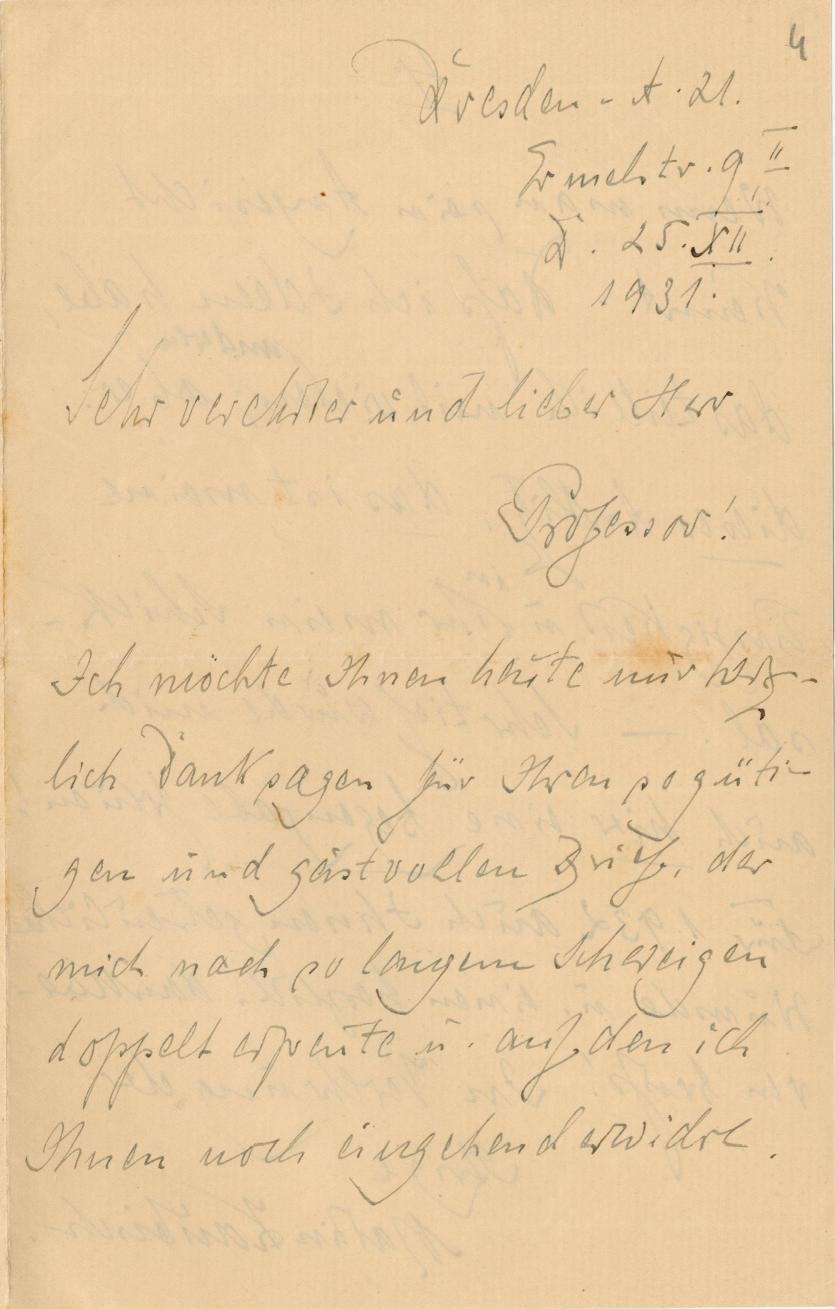 4
Dresden - A. 21.
Ermelstr. 9 II
D. 25. XII.
1931.
Sehr verehrter und lieber Herr
Professor!
Ich möchte Ihnen heute nur herz-
lich Dank sagen für Ihren so güti-
gen und geistvollen Brief, der
mich nach so langem Schweigen
doppelt erfreute u. auf den ich
Ihnen noch eingehend erwidre.